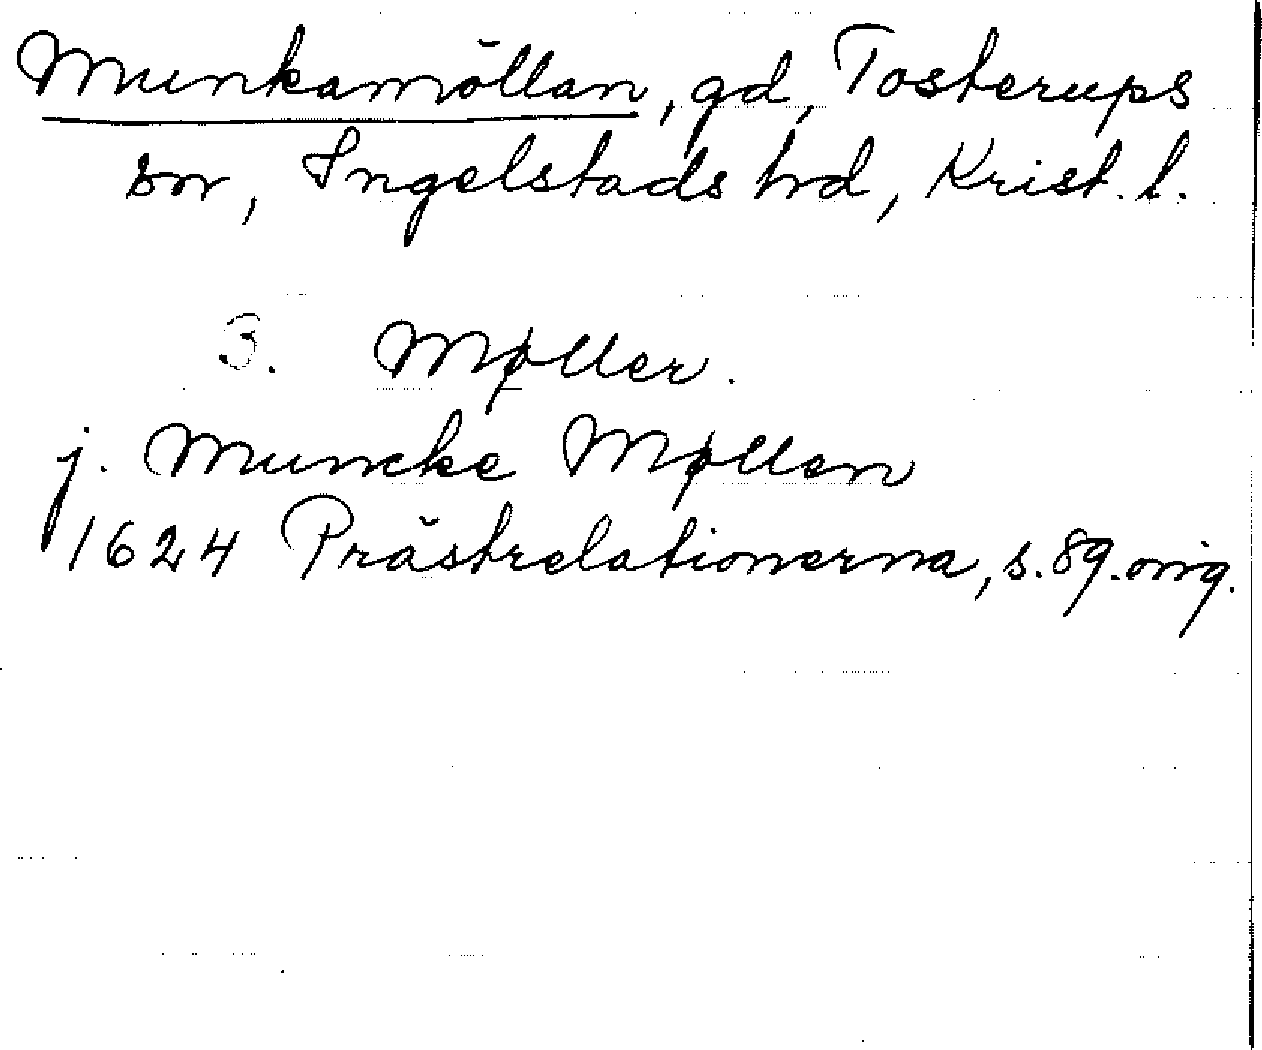 Munkamöllan, gd, Tosterups
sn, Ingelstads hd, Krist. l.
3. Møller.
j. Muncke Møllen
1624 Prästrelationerna, s. 89. orig.